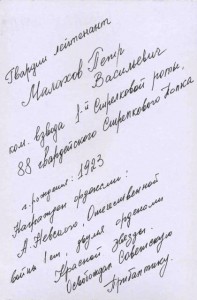 Гвардии лейтенант
Малахов Петр
Васильевич
ком. взвода 1-й стрелковой роты,
88 гвардейского Стрелкового Полка
г. рождения: 1923
Награжден орденами:
А. Невского, Отечественной
войны 1 ст, двумя орденами
Красной Звезды.
Освобождал Советскую
Прибалтику.